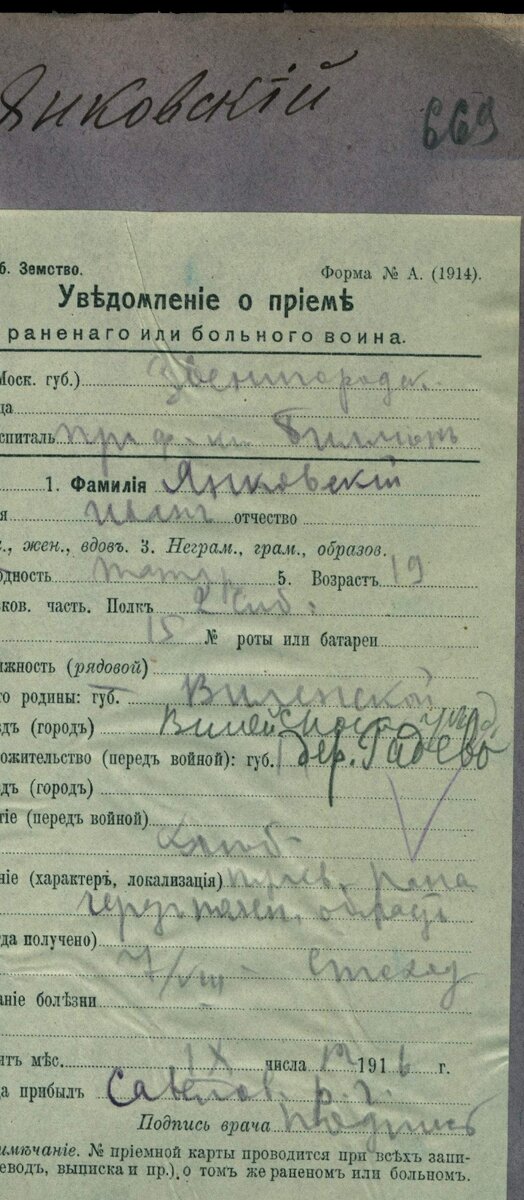 Янковскій
669
б. Земство.
Форма № А. (1914).
Увѣдомленіе о пріемѣ
раненаго или больного воина.
Моск. губ.) Звенигородск.
ца
спиталь при ф-кѣ
1. Фамилія Янковскій
я Иванъ отчество
., жен., вдовъ. 3. Неграм., грам., образов.
одность 5. Возрастъ 19
ков. часть. Полкъ 2 Сиб.
15 № роты или батареи
жность (рядовой)
го родины: губ. Виленской
здъ (городъ) Вилейскаго уѣзд.
ожительство (передъ войной): губ. дер. Гадево
дъ (городъ)
тіе (передъ войной)
Хлѣб-
ніе (характеръ, локализація) пулев. рана
область
гда получено)
7/VIII - Стоход
аніе болѣзни
итъ мѣс. IX числа 1916 г.
да прибылъ Савелов. р. г.
Подпись врача подпись
имѣчаніе. № пріемной карты проводится при всѣхъ запи-
еводъ, выписка и пр.), о томъ же раненомъ или больномъ.